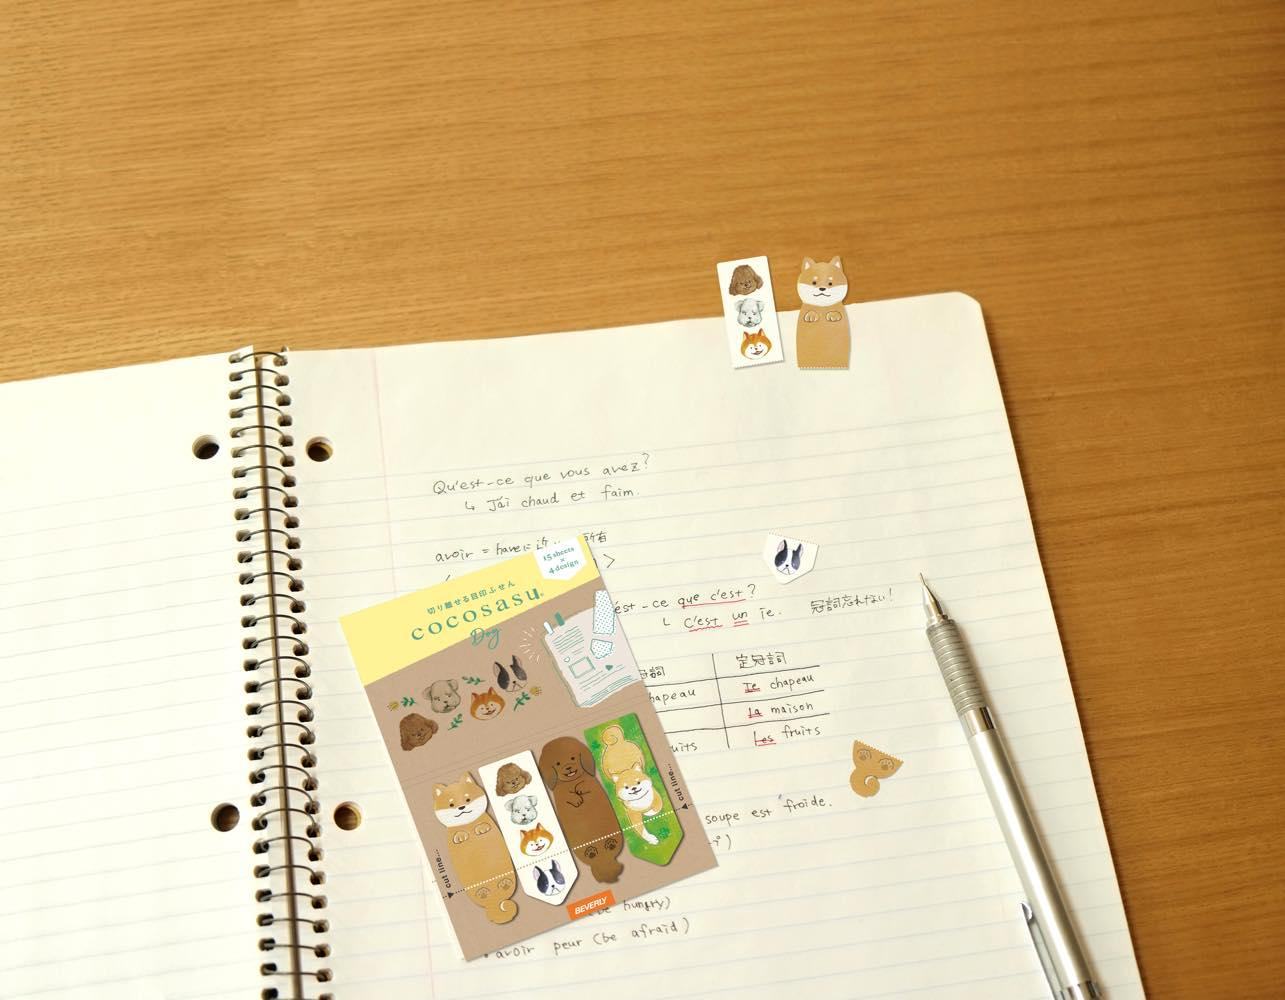 Qu'est-ce que vous avez?
↳ J'ai chaud et faim.
avoir = haveに近い 所有
15 sheets
×
4 design
切り離せる目印ふせん
cocosasu
Dog
est-ce que c'est?
↳ C'est un Te.
冠詞忘れない!
冠詞
定冠詞
chapeau
Te chapeau
La maison
uits
Les fruits
soupe est froide.
cut line...
cut line...
BEVERLY
(be hungry)
avoir peur (be afraid)